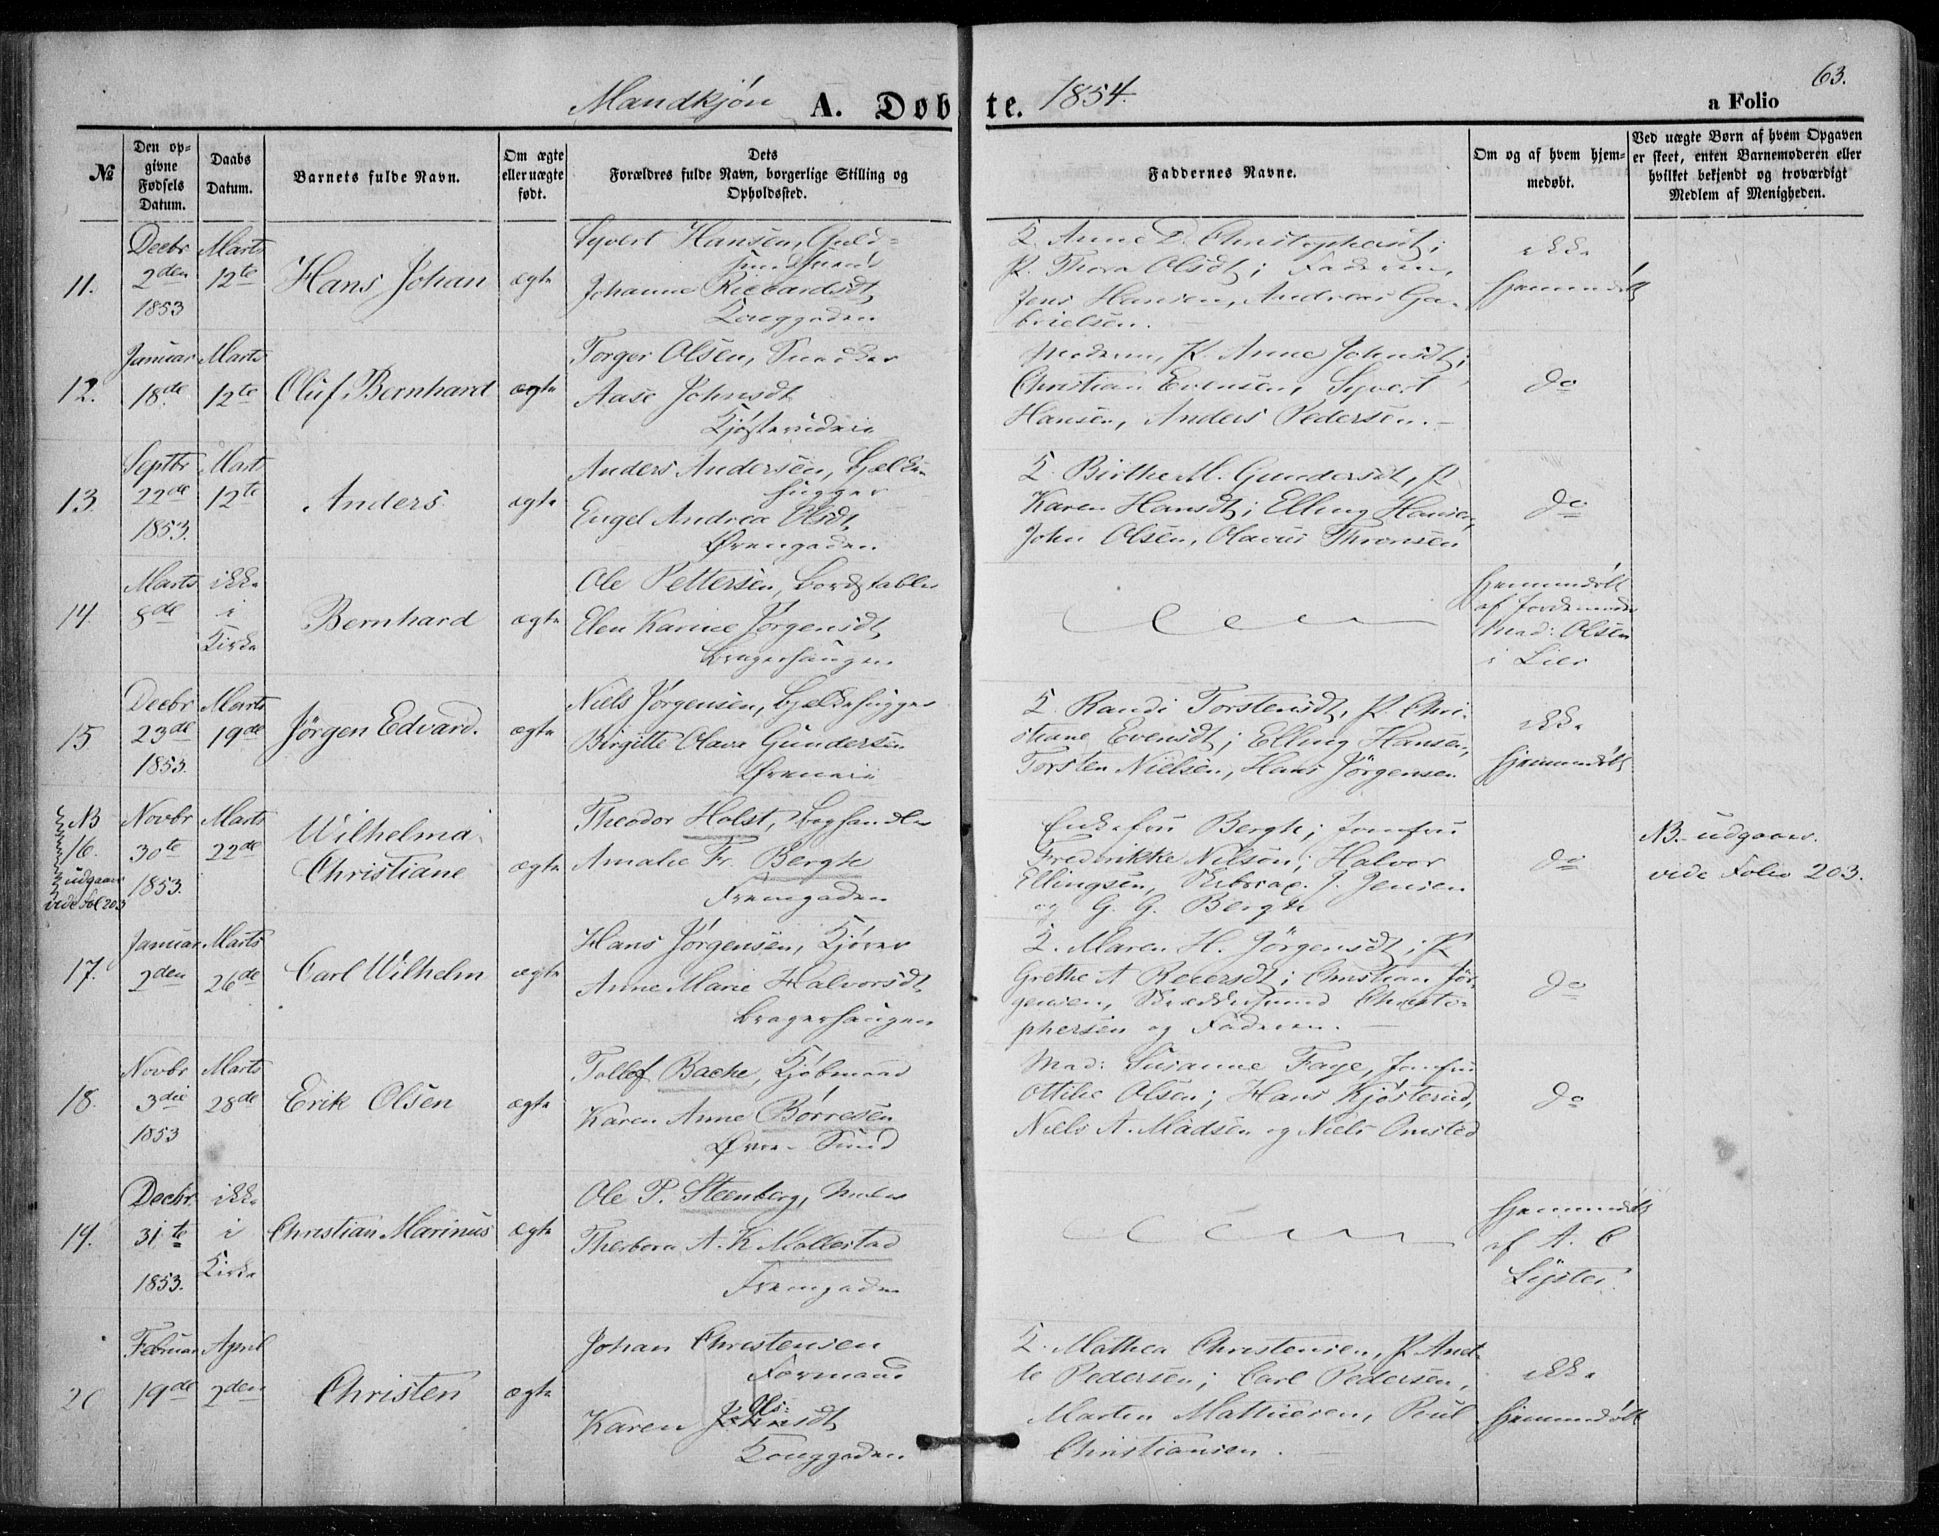 63.
Mandkjøn A. Døbte. 1854. a Folio
№
Den opgivne Fødsels Datum.
Daabs Datum.
Barnets fulde Navn.
Om ægte eller uægte født.
Dets Forældres fulde Navn, borgerlige Stilling og Opholdssted.
Faddernes Navne.
Om og af hvem hjemmedøbt.
Ved uægte Børn af hvem Opgaven er skeet, enten Barnemoderen eller hvilket bekjendt og troværdigt Medlem af Menigheden.
11.
Decbr
2den
1853
Marts
12te
Hans Johan
ægte
Syvert Hansen, Guld=
smedsvend
Johanne Riccardsdt
Konggaden
K. Anne D. Christophersdt;
P. Thora Olsdt; Faderen,
Jens Hansen, Andreas Ga-
brielsen.
ikke
hjemmedøbt
12.
Januar
18de
Marts
12te
Oluf Bernhard
ægte
Torger Olsen, Snedker
Aase Johnsdt
Kjøsterudeie
Moderen, P. Anne Johnsdt;
Christian Evensen, Syvert
Hansen, Anders Pedersen.
do
13
Septbr
22de
1853.
Marts
12te
Anders
ægte
Anders Andersen, Bjælke
hugger
Engel Andrea Olsdt,
Ørengaden
K. Birthe M. Gundersdt, P.
Karen Hansdt; Elling Hansen,
John Olsen, Olavus Thronsen
do
14.
Marts
8de
ikke
i
Kirke
Bernhard
ægte
Ole Pettersen, Bordstabler
Elen Karine Jørgensdt,
Bragerhaugen
hjemmedøbt
af Jordemoder
Mad: Olsen
i Lier
15
Decbr
23de
1853.
Marts
19de
Jörgen Edvard.
ægte
Niels Jørgensen, Bjælkehugger
Birgitte Olava Gundersen
Øreneie
K. Randi Torstensdt, P. Chri-
stiane Evensdt; Elling Hansen,
Torsten Nielsen, Hans Jörgensen
ikke
hjemmedøbt
NB
16.
udgaar
vide fol 203
Novbr
30te
1853.
Marts
22de
Wilhelma
Christiane
ægte
Theodor Holst, Boghandler
Amalie Fr. Bergh
Fremgaden
Enkefru Bergh; Jomfru
Fredrikke Nilsen; Halvor
Ellingsen, J. Jensen
og G. G. Bergh
do
NB. udgaar.
vide Folio 203.
17.
Januar
2den
Marts
26de
Carl Wilhelm
ægte
Hans Jørgensen, Kjører
Anne Marie Halvorsdt,
Bragerhaugen
K. Maren H. Jörgensdt; P.
Grethe A Reiersdt; Christian Jör-
gensen, Skræddersvend Christo-
phersen og Faderen.
do
18.
Novbr
3die
1853
Marts
28de
Erik Olsen
ægte
Tollef Bache, Kjøbmand
Karen Anne Börresen
Øvre-Sund
Mad: Susanne Faye, Jomfru
Ottilie Olsen; Hans Kjøsterud,
Niels A. Madsen og Niels Omsted
do
19.
Decbr
31te
1853.
ikke
i
Kirke
Christian Marinus
ægte
Ole P. Steenberg, Maler
Therbora A. K. Mollestad
Fremgaden
hjemmedøbt
af A. C
Lyster.
20
Februar
19de
April
2den
Christen
ægte
Johan Christensen
Formand
Ols=
Karen Johnsdt
Konggaden
K. Mathea Christensen, P. Anet-
te Pedersen; Carl Pedersen,
Martin Mathiesen, Poul
Christiansen.
ikke
hjemmedøbt